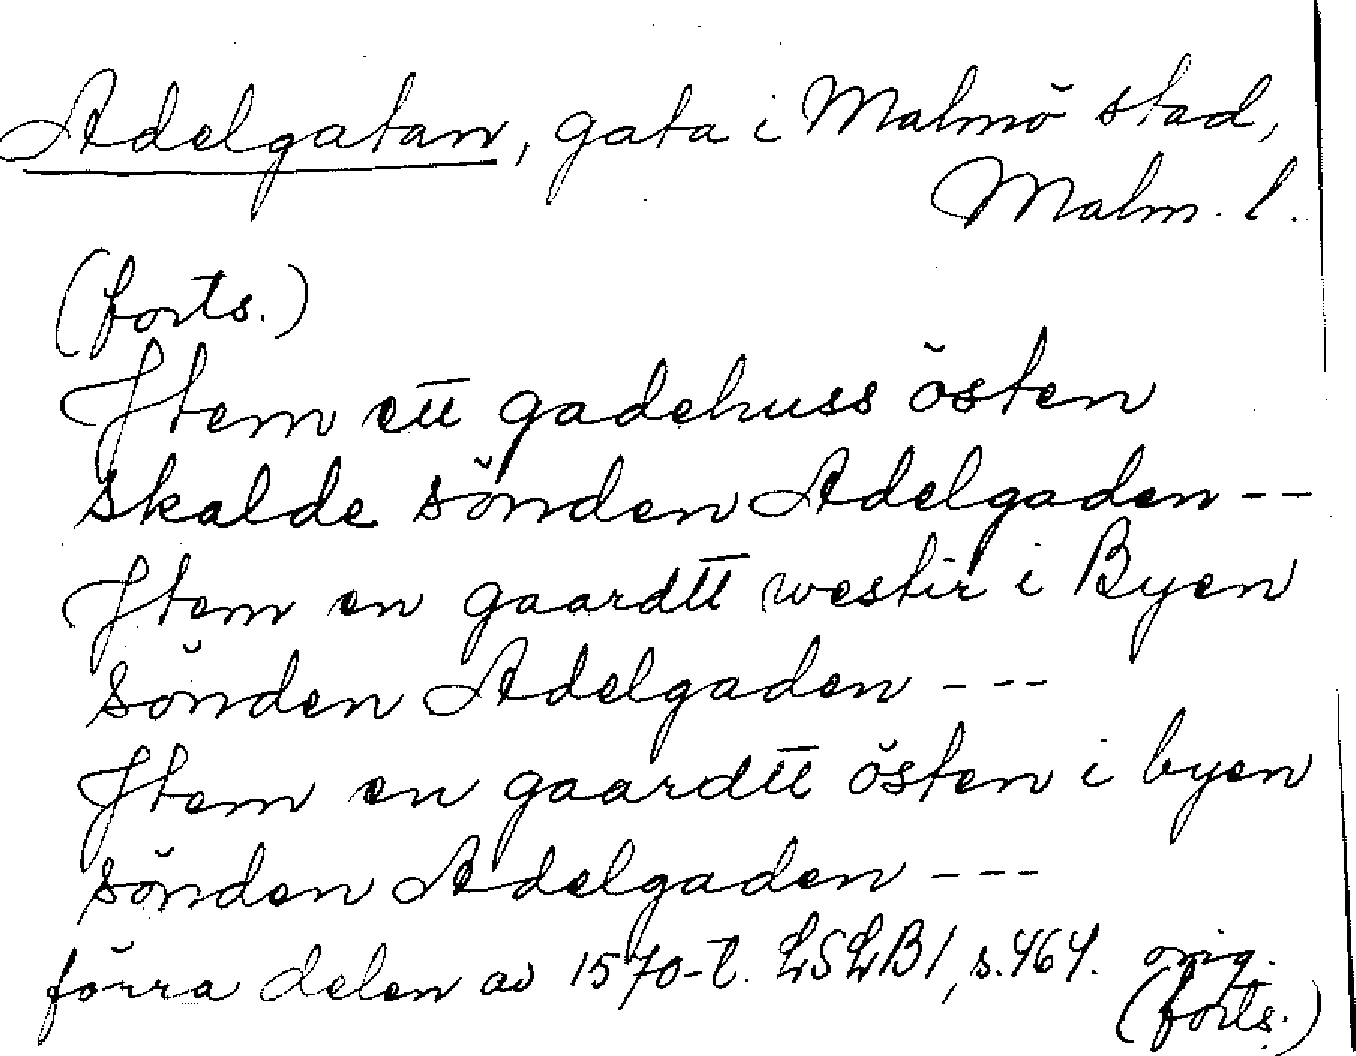 Adelgatan, gata i Malmö stad,
Malm. l.
(forts.)
Jtem ett gadehuss östen
skalde sönden Adelgaden --
Jtem en gaardtt westir i Byen
sönden Adelgaden ---
Jtem en gaardtt östen i byen
sönden Adelgaden ---
förra delen av 1570-t. LSLB1, s.464. orig.
(forts.)